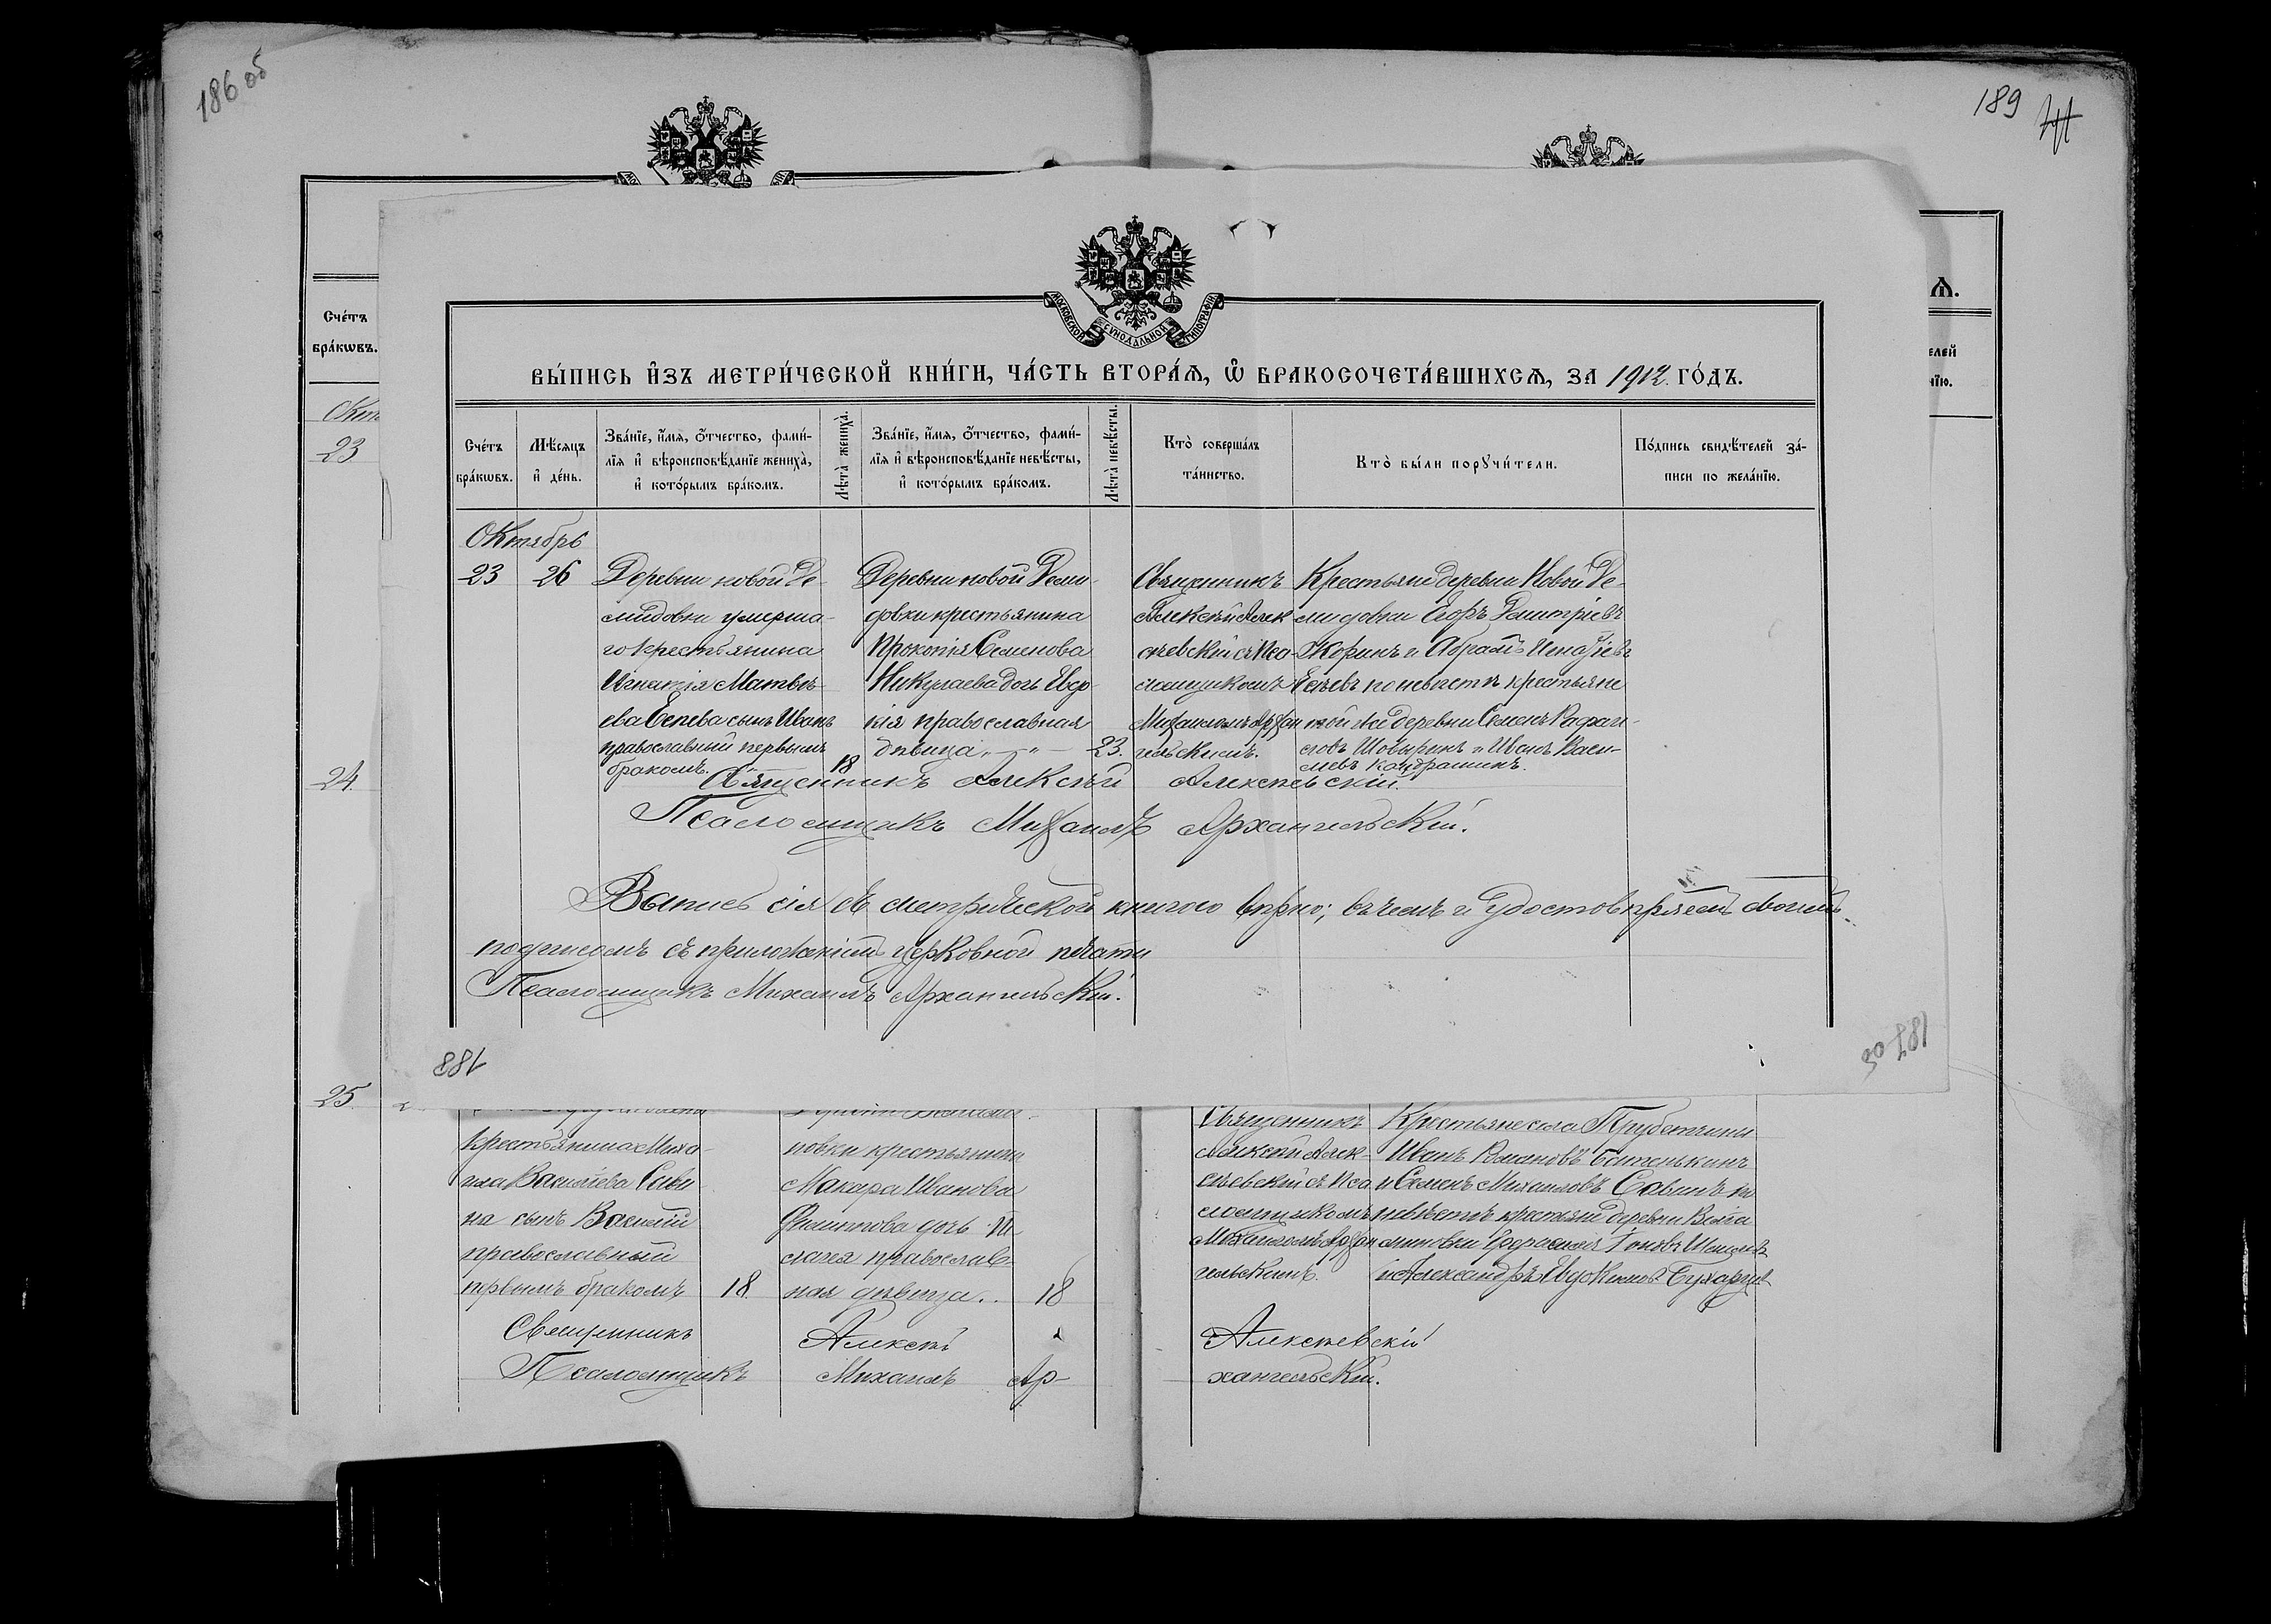 186 об
189
МОСКОВСКОЙ СѴНОДАЛЬНОЙ ТИПОГРАФІИ
Ѧ.
Счéтъ
брáкѡвъ.
елей
нїю.
Окт
23
24.
25.
ВЫ́ПИСЬ И҆ЗЪ МЕТРИ́ЧЕСКОЙ КНИ́ГИ, ЧА́СТЬ ВТОРА́Ѧ, Ѽ БРАКОСОЧЕТА́ВШИХСѦ, ЗА 1912 ГО́ДЪ.
Счéтъ
брáкѡвъ.
Мѣ́сяцъ
и҆ дéнь.
Звáнїе, и҆́мя, ѻ҆́тчество, фами́-
лїя и҆ вѣроисповѣ́данїе женихà,
и҆ котóрымъ брáкомъ.
Лѣ́та̀ женихà.
Звáнїе, и҆́мя, ѻ҆́тчество, фами́-
лїя и҆ вѣроисповѣ́данїе невѣ́сты,
и҆ котóрымъ брáкомъ.
Лѣ́та̀ невѣ́сты.
Ктò совершáлъ
тáинство.
Ктò бы́ли порꙋчи́тели.
Пóдпись свидѣ́телей зá-
писи по желáнїю.
Октябрь
23
26
Деревни новой Де-
мидовки умерша-
го крестьянина
Игнатія Матвѣ-
ева Есѣева сынъ Иванъ
православный первымъ
бракомъ.
18
Деревни новой Деми-
довки крестьянина
Прокопія Семенова
Никулаева дочь Евдо-
кія православная
дѣвица „ — „ —
23.
Священникъ
Алексѣй Алек
сѣевскій съ Пса-
ломщикомъ
Михаиломъ Архан
гельскимъ.
Крестьяне деревни Новой Де-
мидовки Егоръ Димитріевъ
и Абрамъ Игнатіевъ
Есѣевъ по невѣстѣ крестьяне
той же деревни Семенъ
и Иванъ Васи-
льевъ Кандрашинъ.
Священникъ Алексѣй Алексѣевскій.
Псаломщикъ Михаилъ Архангельскій.
Выпись сія съ метрической книгою вѣрно; въ чемъ и удостовѣряемъ своимъ
подписомъ съ приложеніемъ церковной печати
Псаломщикъ Михаилъ Архангельскій.
188
187 об
крестьянина Миха-
ила Васильева Сави
на сынъ Василій
православный
первымъ бракомъ
18.
новки крестьянина
Макара Иванова
Филиппова дочь
православ-
ная дѣвица..
18
Священникъ
Алексѣй Алек-
сѣевскій съ Пса
ломщикомъ
Михаиломъ Архан
гельскимъ.
Крестьяне села Трубетчины
Иванъ Романовъ Батенькинъ
и Семенъ Михаиловъ Савинъ по
невѣстѣ крестьяне деревни
и Александръ Евдокимовъ
Священникъ Алексѣй Алексѣевскій
Псаломщикъ Михаилъ Ар-
хангельскій.